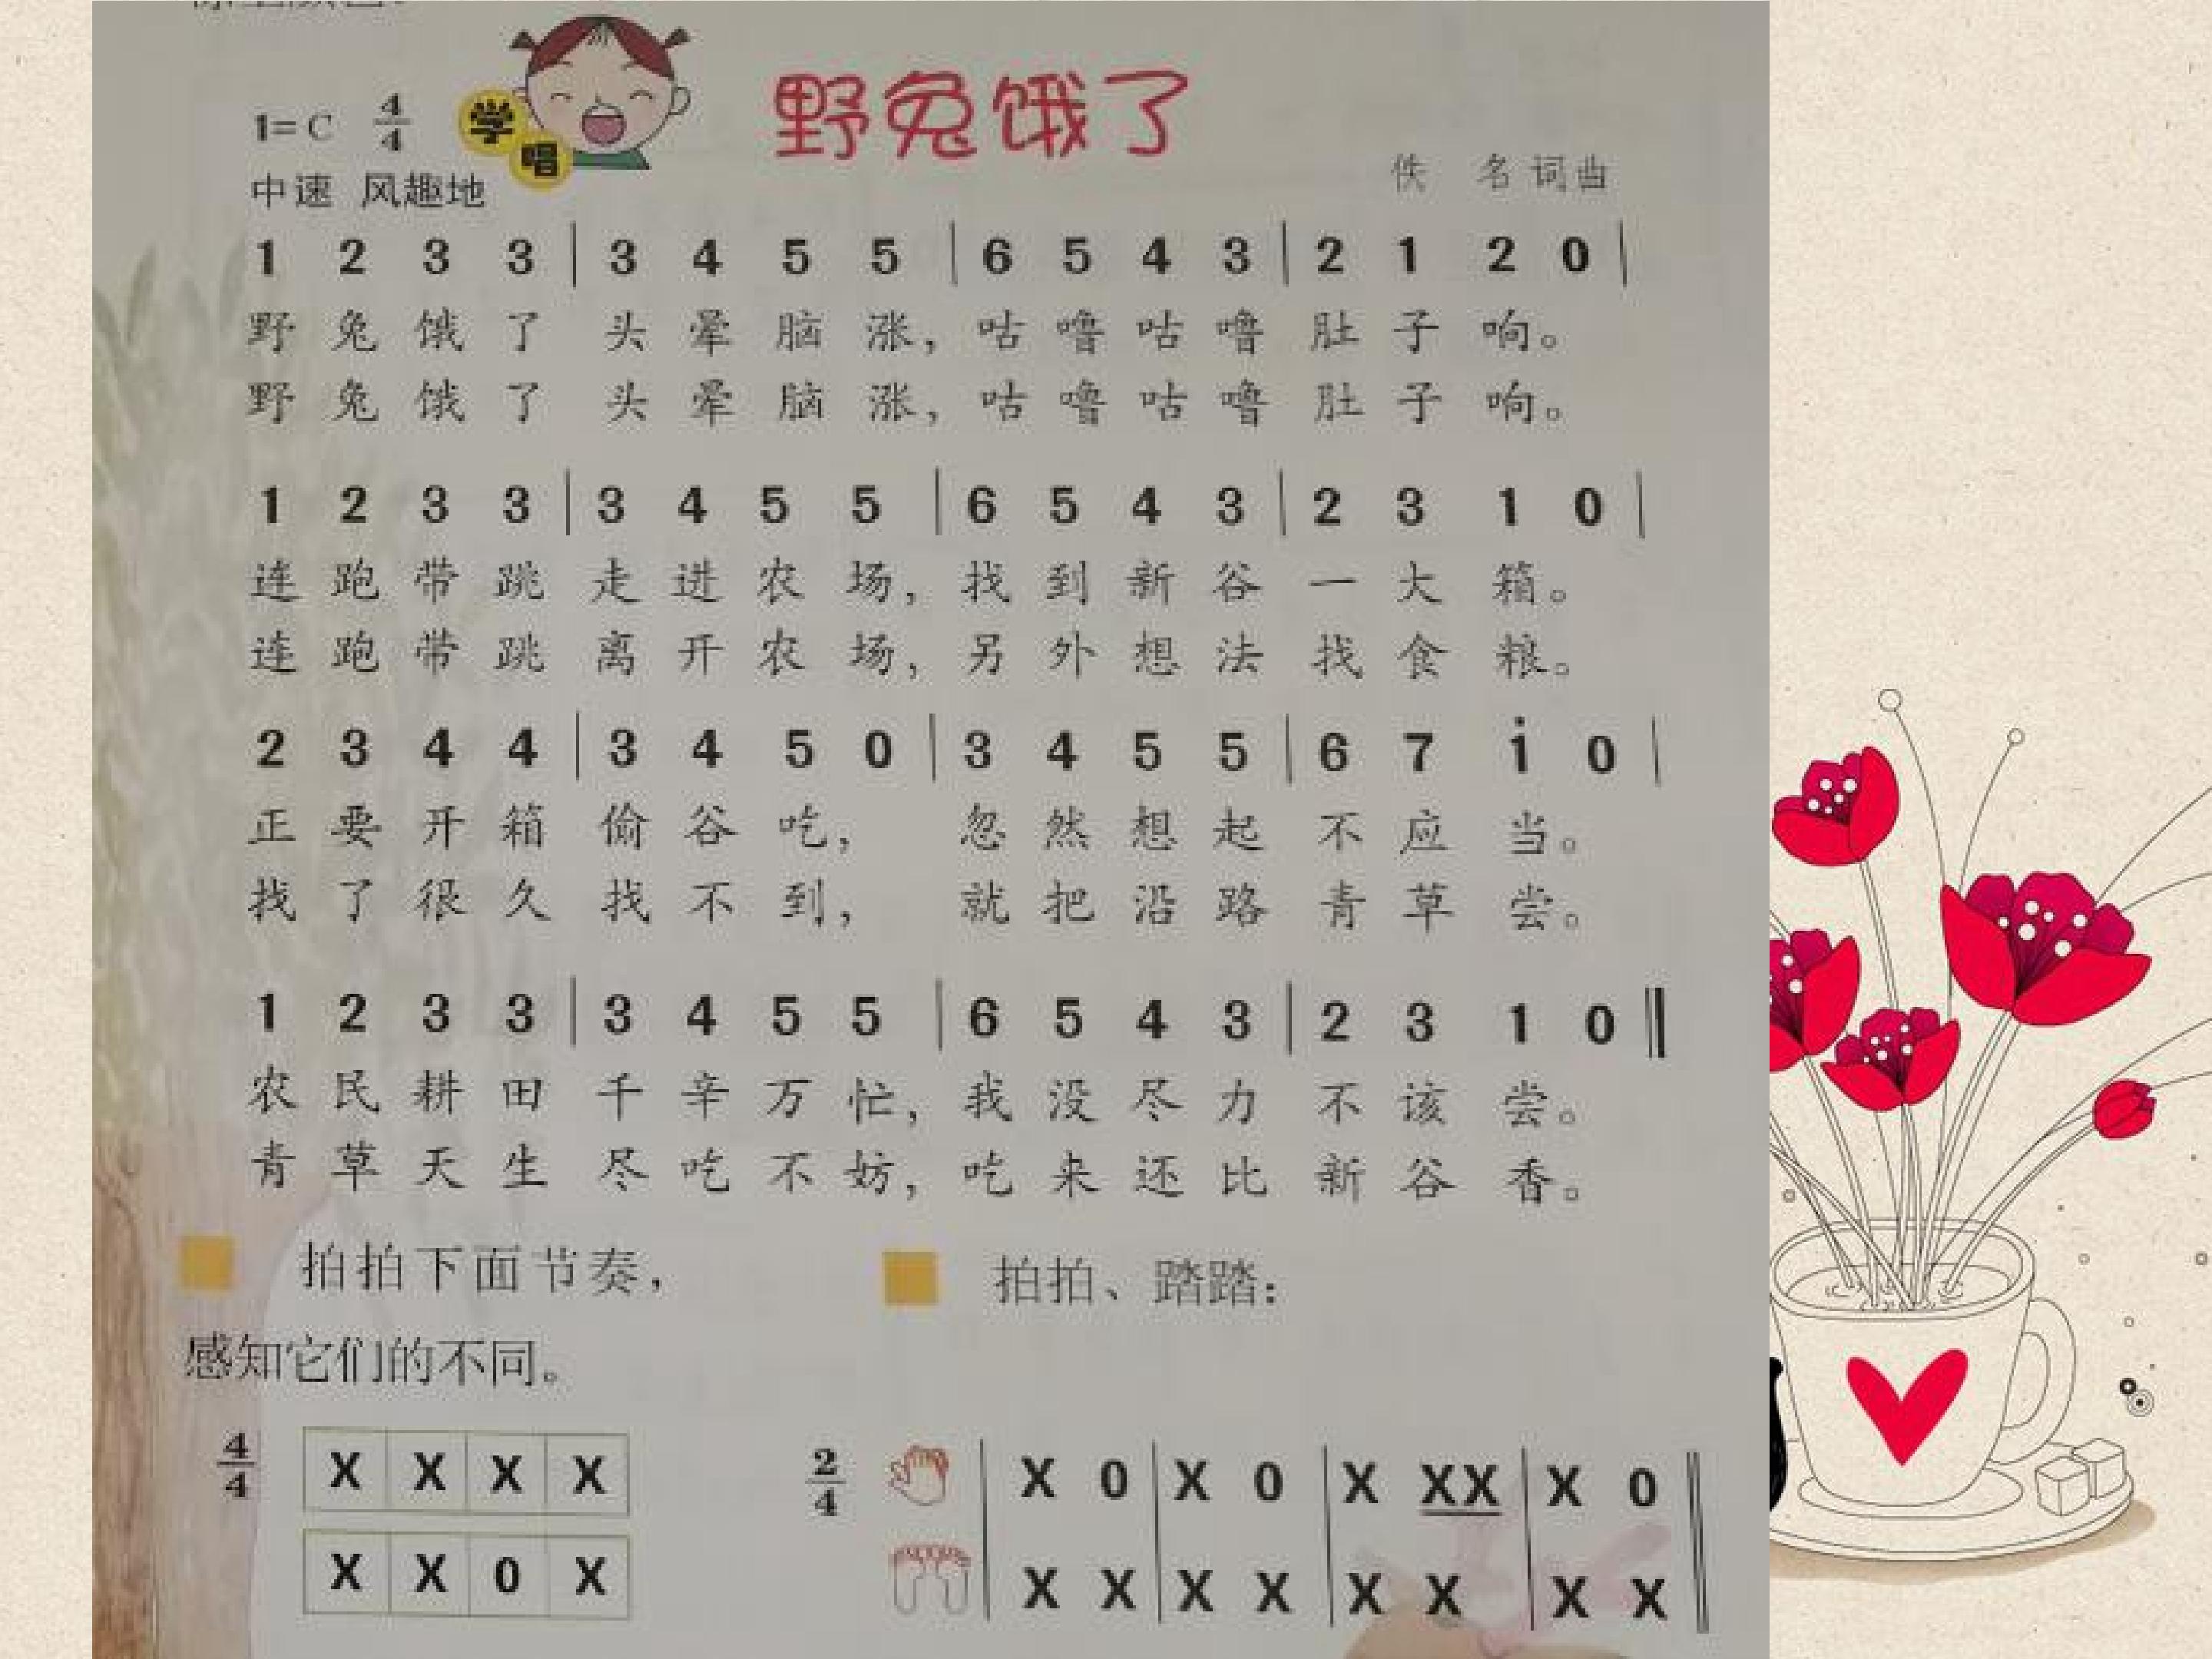 野兔饿了
1=C 4/4
学唱
中速 风趣地
佚 名 词曲
1 2 3 3 | 3 4 5 5 | 6 5 4 3 | 2 1 2 0 |
野 兔 饿 了 头 晕 脑 涨， 咕 噜 咕 噜 肚 子 响。
野 兔 饿 了 头 晕 脑 涨， 咕 噜 咕 噜 肚 子 响。
1 2 3 3 | 3 4 5 5 | 6 5 4 3 | 2 3 1 0 |
连 跑 带 跳 走 进 农 场， 找 到 新 谷 一 大 箱。
连 跑 带 跳 离 开 农 场， 另 外 想 法 找 食 粮。
2 3 4 4 | 3 4 5 0 | 3 4 5 5 | 6 7 i 0 |
正 要 开 箱 偷 谷 吃， 忽 然 想 起 不 应 当。
找 了 很 久 找 不 到， 就 把 沿 路 青 草 尝。
1 2 3 3 | 3 4 5 5 | 6 5 4 3 | 2 3 1 0 ‖
农 民 耕 田 千 辛 万 忙， 我 没 尽 力 不 该 尝。
青 草 天 生 尽 吃 不 妨， 吃 来 还 比 新 谷 香。
拍拍下面节奏，
感知它们的不同。
4/4 X X X X
X X 0 X
拍拍、踏踏：
2/4 | X 0 | X 0 | X XX | X 0 ‖
X X | X X | X X | X X